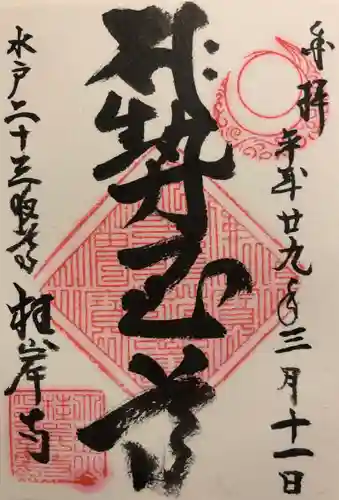 奉拝
平成廿九年三月十一日
勢至尊
水戸二十三夜尊 桂岸寺